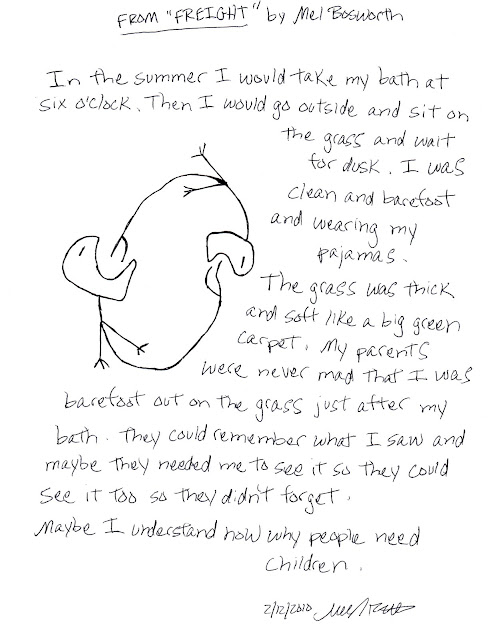 FROM "FREIGHT" by Mel Bosworth
In the summer I would take my bath at
six o'clock. Then I would go outside and sit on
the grass and wait
for dusk. I was
clean and barefoot
and wearing my
pajamas.
The grass was thick
and soft like a big green
carpet. My parents
were never mad that I was
barefoot out on the grass just after my
bath. They could remember what I saw and
maybe they needed me to see it so they could
see it too so they didn't forget.
Maybe I understand now why people need
children.
2/12/2010